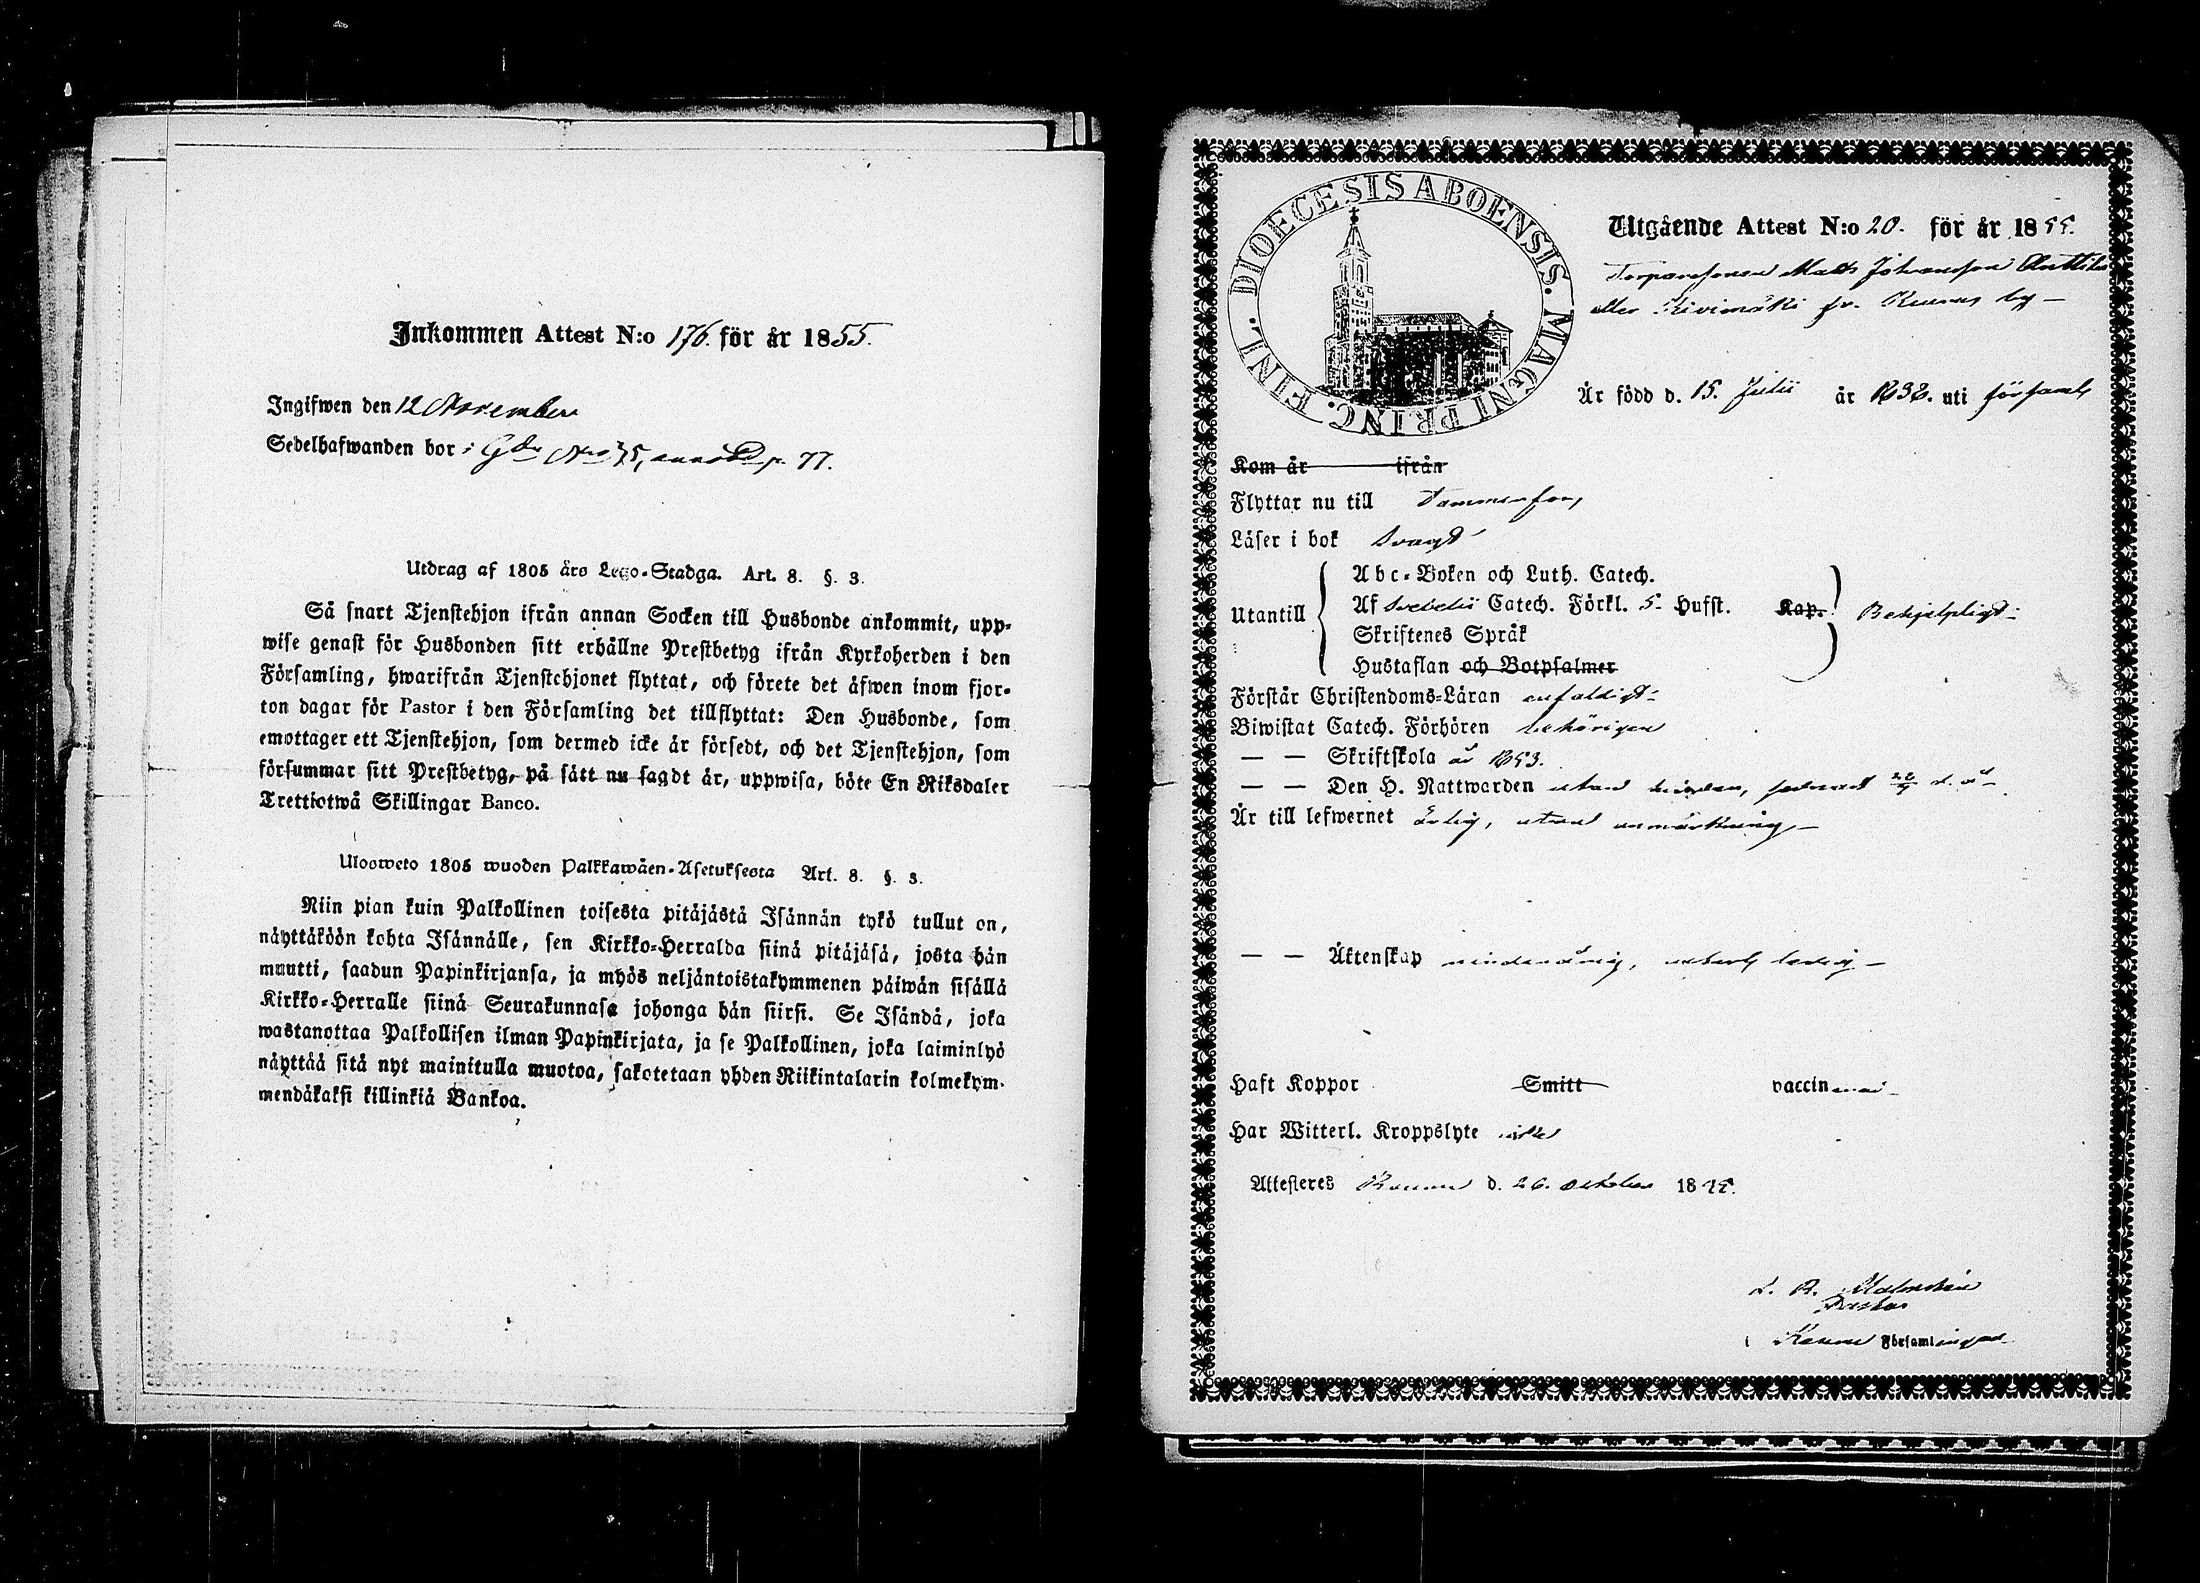 Inkommen Attest N:o 176. för år 1855.
Ingifwen den 12 November
Sedelhafwanden bor i Gdn Nro 75, p. 77.
Utdrag af 1805 års Lego-Stadga. Art. 8. §. 3.
Så snart Tjenstehjon ifrån annan Socken till Husbonde ankommit, upp-
wise genast för Husbonden sitt erhållne Prestbetyg ifrån Kyrkoherden i den
Församling, hwarifrån Tjenstehjonet flyttat, och förete det äfwen inom fjor-
ton dagar för Pastor i den Församling det tillflyttat: Den Husbonde, som
emottager ett Tjenstehjon, som dermed icke är försedt, och det Tjenstehjon, som
försummar sitt Prestbetyg, på sätt nu sagdt är, uppwisa, böte En Riksdaler
Trettiotwå Skillingar Banco.
Ulosweto 1805 wuoden Palkkawäen-Asetuksesta Art. 8. §. 3.
Niin pian kuin Palkollinen toisesta pitäjästä Isännän tykö tullut on,
näyttäköön kohta Isännälle, sen Kirkko-Herralda siinä pitäjäsä, josta hän
muutti, saadun Papinkirjansa, ja myös neljäntoistakymmenen päiwän sisällä
Kirkko-Herralle siinä Seurakunnasa johonga hän siirsi. Se Isändä, joka
wastanottaa Palkollisen ilman Papinkirjata, ja se Palkollinen, joka laiminlyö
näyttää sitä nyt mainitulla muotoa, sakotetaan yhden Riikintalarin kolmekym-
mendäkaksi killinkiä Bankoa.
DIOECESIS ABOENSIS. MAGNI PRINC. FINL.
Utgående Attest N:o 20. för år 1855.
Torparesonen Matts Johansson Anttila
eller Kivimäki fr. by
Är född d. 15. Julii år 1838. uti förs:aml
Kom år ifrån
Flyttar nu till Tammerfors
Läser i bok svagt
Abc-Boken och Luth. Catech.
Utantill Af Svebelii Catech. Förkl. 5 Hufst. Kap. Behjelpligt
Skriftenes Språk
Hustaflan och Botpsalmer
Förstår Christendoms-Läran enfaldigt
Biwistat Catech. Förhören behörigen
— — Skriftskola år 1853.
— — Den H. Nattwarden utan hinder, senast d. å.
Är till lefwernet ärlig, utan anmärkning
— — Äktenskap minderårig, ledig
Haft Koppor Smitt vaccinerad
Har Witterl. Kroppslyte icke
Attesteres d. 26. October 1855.
Malmstén
Pastor
i Församlingen